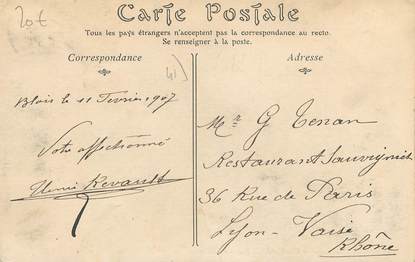 20€
Carte Postale
Tous les pays étrangers n'acceptent pas la correspondance au recto.
Se renseigner à la poste.
Correspondance
41)
Blois le 11 Février 1907
Votre affectionné
Henri Revault
Adresse
Mr G Tenan
Restaurant Sauvignet
36 Rue de Paris
Lyon-Vaise
Rhône